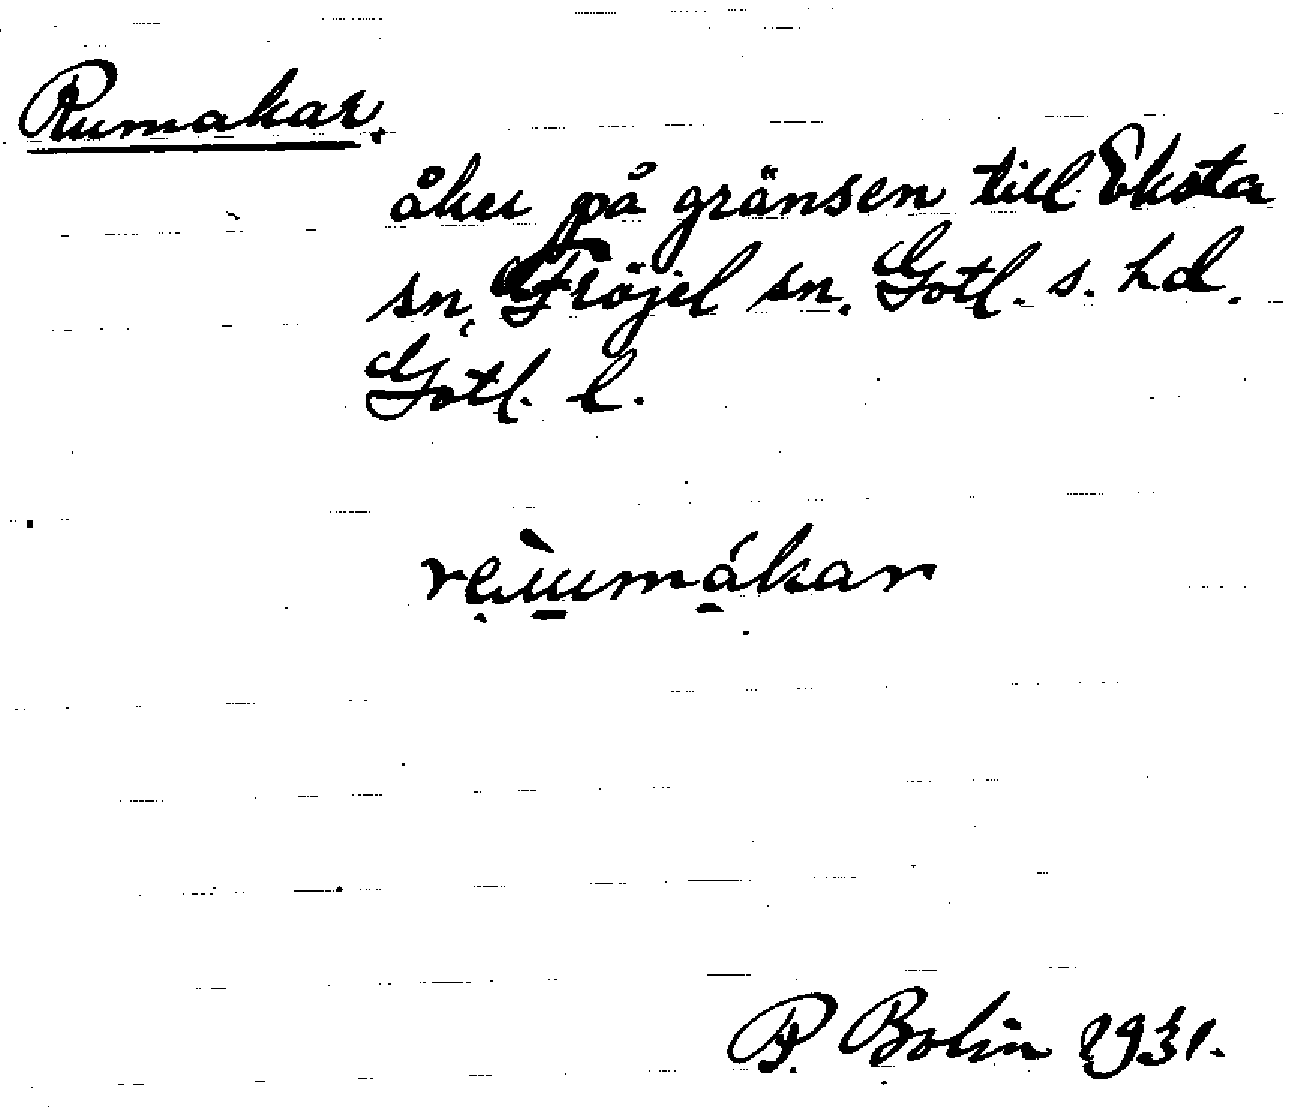 Rumakar.
åker på gränsen till Eksta
sn, Fröjel sn. Gotl. s. hd.
Gotl. l.
P. Bolin 1931.